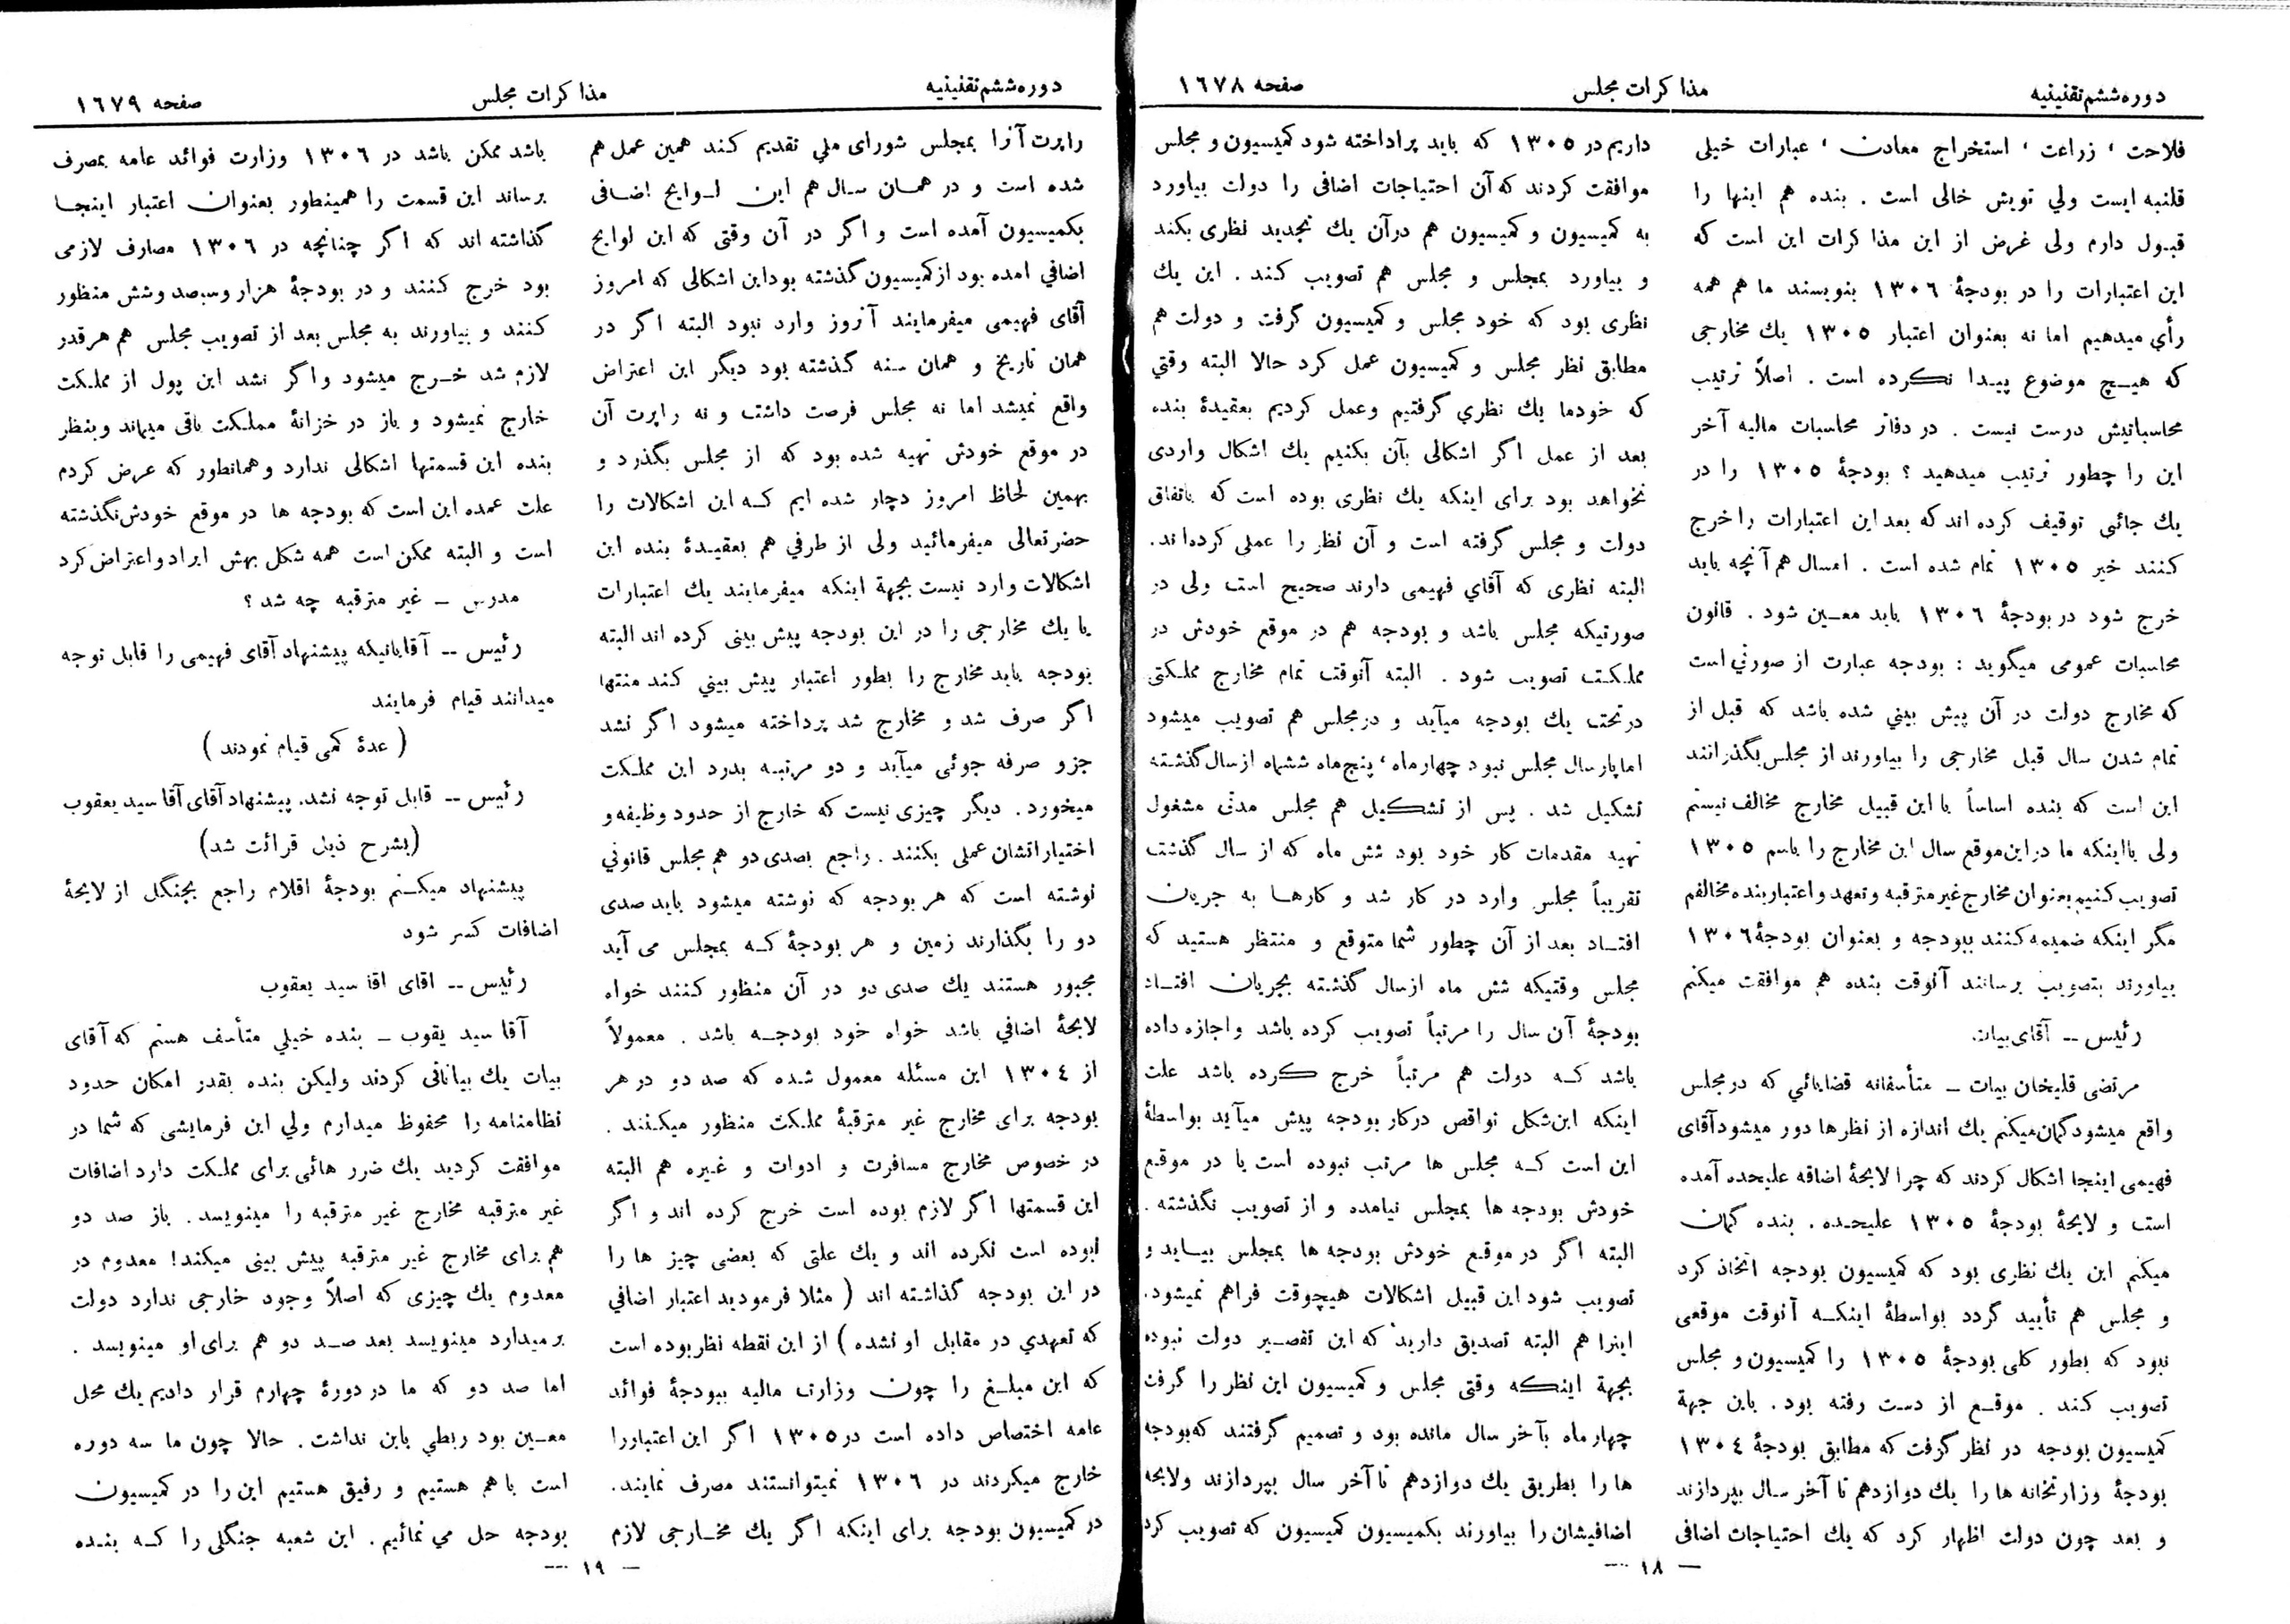 دوره ششم تقنینیه
مذاکرات مجلس
صفحه ۱۶۷۸
فلاحت ، زراعت ، استخراج معادن ، عبارات خیلی
قلنبه ایست ولي تویش خالی است . بنده هم اینها را
قبول دارم ولی غرض از این مذاکرات این است که
این اعتبارات را در بودجهٔ ۱۳۰۶ بنویسند ما هم همه
رأي میدهیم اما نه بعنوان اعتبار ۱۳۰۵ یك مخارجی
که هیچ موضوع پیدا نکرده است . اصلاً ترتیب
محاسباتیش درست نیست . در دفاتر محاسبات مالیه آخر
این را چطور ترتیب میدهید ؟ بودجهٔ ۱۳۰۵ را در
یك جائی توقیف کرده اند که بعد این اعتبارات را خرج
کنند خیر ۱۳۰۵ تمام شده است . امسال هم آنچه باید
خرج شود در بودجهٔ ۱۳۰۶ باید معین شود . قانون
محاسبات عمومی میگوید : بودجه عبارت از صورتی است
که مخارج دولت در آن پیش بیني شده باشد که قبل از
تمام شدن سال قبل مخارجی را بیاورند از مجلس بگذرانند
این است که بنده اساساً با این قبیل مخارج مخالف نیستم
ولی با اینکه ما در این موقع سال این مخارج را باسم ۱۳۰۵
تصویب کنیم بعنوان مخارج غیر مترقبه و تعهد و اعتبار بنده مخالفم
مگر اینکه ضمیمه کنند ببودجه و بعنوان بودجهٔ ۱۳۰۶
بیاورند بتصویب برسانند آنوقت بنده هم موافقت میکنم
رئیس -- آقای بیات
مرتضی قلیخان بیات - متأسفانه قضایائي که در مجلس
واقع میشود گمان میکنم یك اندازه از نظرها دور میشود آقای
فهیمی اینجا اشکال کردند که چرا لایحهٔ اضافه علیحده آمده
است و لایحهٔ بودجهٔ ۱۳۰۵ علیحده . بنده گمان
میکنم این یك نظری بود که کمیسیون بودجه اتخاذ کرد
و مجلس هم تأیید کرد بواسطهٔ اینکه آنوقت موقعی
نبود که بطور کلی بودجهٔ ۱۳۰۵ را کمیسیون و مجلس
تصویب کند . موقع از دست رفته بود . باین جهة
کمیسیون بودجه در نظر گرفت که مطابق بودجهٔ ۱۳۰۴
بودجهٔ وزارتخانه ها را یك دوازدهم تا آخر سال بپردازند
و بعد چون دولت اظهار کرد که یك احتیاجات اضافی
داریم در ۱۳۰۵ که باید پراداخته شود کمیسیون و مجلس
موافقت کردند که آن احتیاجات اضافی را دولت بیاورد
به کمیسیون و کمیسیون هم در آن یك تجدید نظری بکند
و بیاورد بمجلس و مجلس هم تصویب کند . این یك
نظری بود که خود مجلس و کمیسیون گرفت و دولت هم
مطابق نظر مجلس و کمیسیون عمل کرد حالا البته وقتي
که خودما یك نظري گرفتیم وعمل کردیم بعقیدهٔ بنده
بعد از عمل اگر اشکالی بآن بکنیم یك اشکال واردی
نخواهد بود برای اینکه یك نظری بوده است که باتفاق
دولت و مجلس گرفته است و آن نظر را عملی کرده اند.
البته نظری که آقاي فهیمی دارند صحیح است ولی در
صورتیکه مجلس باشد و بودجه هم در موقع خودش در
مملکت تصویب شود . البته آنوقت تمام مخارج مملکتی
در تحت یك بودجه میآید و در مجلس هم تصویب میشود
اما پارسال مجلس نبود چهارماه ، پنج ماه ششماه از سال گذشته
تشکیل شد . پس از تشکیل هم مجلس مدتی مشغول
تهیه مقدمات کار خود بود شش ماه که از سال گذشت
تقریباً مجلس وارد در کار شد و کارها به جریان
افتاد بعد از آن چطور شما متوقع و منتظر هستید که
مجلس وقتیکه شش ماه از سال گذشته بجریان افتاد
بودجهٔ آن سال را مرتباً تصویب کرده باشد و اجازه داده
باشد که دولت هم مرتباً خرج کرده باشد علت
اینکه این شکل نواقص در کار بودجه پیش میآید بواسطهٔ
این است که مجلس ها مرتب نبوده است یا در موقع
خودش بودجه ها بمجلس نیامده و از تصویب نگذشته .
البته اگر در موقع خودش بودجه ها بمجلس بیاید و
تصویب شود این قبیل اشکالات هیچوقت فراهم نمیشود.
اینرا هم البته تصدیق دارید که این تقصیر دولت نبوده
بجهة اینکه وقتی مجلس و کمیسیون این نظر را گرفت
چهار ماه بآخر سال مانده بود و تصمیم گرفتند که بودجه
ها را بطریق یك دوازدهم تا آخر سال بپردازند ولایحه
اضافیشان را بیاورند بکمیسیون کمیسیون که تصویب کرد
— ۱۸ —
دوره ششم تقنینیه
مذاکرات مجلس
صفحه ۱۶۷۹
راپرت آنرا بمجلس شورای ملي تقدیم کند همین عمل هم
شده است و در همان سال هم این لوایح اضافی
بکمیسیون آمده است و اگر در آن وقتی که این لوایح
اضافي امده بود از کمیسیون گذشته بود این اشکالی که امروز
آقای فهیمی میفرمایند آنروز وارد نبود البته اگر در
همان تاریخ و همان سنه گذشته بود دیگر این اعتراض
واقع نمیشد اما نه مجلس فرصت داشت و نه راپرت آن
در موقع خودش تهیه شده بود که از مجلس بگذرد و
بهمین لحاظ امروز دچار شده ایم که این اشکالات را
حضرتعالی میفرمائید ولی از طرفي هم بعقیدهٔ بنده این
اشکالات وارد نیست بجهة اینکه میفرمایند یك اعتبارات
یا یك مخارجی را در این بودجه پیش بینی کرده اند البته
بودجه باید مخارج را بطور اعتبار پیش بیني کند منتها
اگر صرف شد و مخارج شد پرداخته میشود اگر نشد
جزو صرفه جوئی میآید و دو مرتبه بدرد این مملکت
میخورد . دیگر چیزی نیست که خارج از حدود وظیفه و
اختیاراتشان عملی بکنند . راجع بصدی دو هم مجلس قانوني
نوشته است که هر بودجه که نوشته میشود باید صدی
دو را بگذارند زمین و هر بودجهٔ که بمجلس می آید
مجبور هستند یك صدی دو در آن منظور کنند خواه
لایحهٔ اضافي باشد خواه خود بودجه باشد . معمولاً
از ۱۳۰۴ این مسئله معمول شده که صد دو در هر
بودجه برای مخارج غیر مترقبهٔ مملکت منظور میکنند .
در خصوص مخارج مسافرت و ادوات و غیره هم البته
این قسمتها اگر لازم بوده است خرج کرده اند و اگر
نبوده است نکرده اند و یك علتی که بعضی چیز ها را
در این بودجه گذاشته اند ( مثلا فرمودید اعتبار اضافي
که تعهدي در مقابل او نشده ) از این نقطه نظر بوده است
که این مبلغ را چون وزارت مالیه ببودجهٔ فوائد
عامه اختصاص داده است در ۱۳۰۵ اگر این اعتباررا
خارج میکردند در ۱۳۰۶ نمیتوانستند مصرف نمایند.
در کمیسیون بودجه برای اینکه اگر یك مخارجی لازم
باشد ممکن باشد در ۱۳۰۶ وزارت فوائد عامه بمصرف
برساند این قسمت را همینطور بعنوان اعتبار اینجا
گذاشته اند که اگر چنانچه در ۱۳۰۶ مصارف لازمی
بود خرج کنند و در بودجهٔ هزار وسیصد وشش منظور
کنند و بیاورند به مجلس بعد از تصویب مجلس هم هرقدر
لازم شد خرج میشود و اگر نشد این پول از مملکت
خارج نمیشود و باز در خزانهٔ مملکت باقی میماند و بنظر
بنده این قسمتها اشکالی ندارد وهمانطور که عرض کردم
علت عمده این است که بودجه ها در موقع خودش نگذشته
است و البته ممکن است همه شکل بهش ایراد و اعتراض کرد
مدرس - غیر مترقبه چه شد ؟
رئیس -- آقایانیکه پیشنهاد آقای فهیمی را قابل توجه
میدانند قیام فرمایند
( عدهٔ کمی قیام نمودند )
رئیس -- قابل توجه نشد. پیشنهاد آقای آقا سید یعقوب
(بشرح ذیل قرائت شد)
پیشنهاد میکنم بودجهٔ اقلام راجع بجنگل از لایحهٔ
اضافات کسر شود
رئیس -- اقای اقا سید یعقوب
آقا سید یقوب - بنده خیلي متأسف هستم که آقای
بیات یك بیاناتی کردند ولیکن بنده بقدر امکان حدود
نظامنامه را محفوظ میدارم ولي این فرمایشی که شما در
موافقت کردید یك ضرر هائی برای مملکت دارد اضافات
غیر مترقبه مخارج غیر مترقبه را مینویسد . باز صد دو
هم برای مخارج غیر مترقبه پیش بینی میکند! معدوم در
معدوم یك چیزی که اصلاً وجود خارجی ندارد دولت
برمیدارد مینویسد بعد صد دو هم برای او مینویسد .
اما صد دو که ما در دورهٔ چهارم قرار دادیم یك محل
معین بود ربطي باین نداشت . حالا چون ما سه دوره
است با هم هستیم و رفیق هستیم این را در کمیسیون
بودجه حل مي نمائیم . این شعبه جنگلی را که بنده
— ۱۹ —